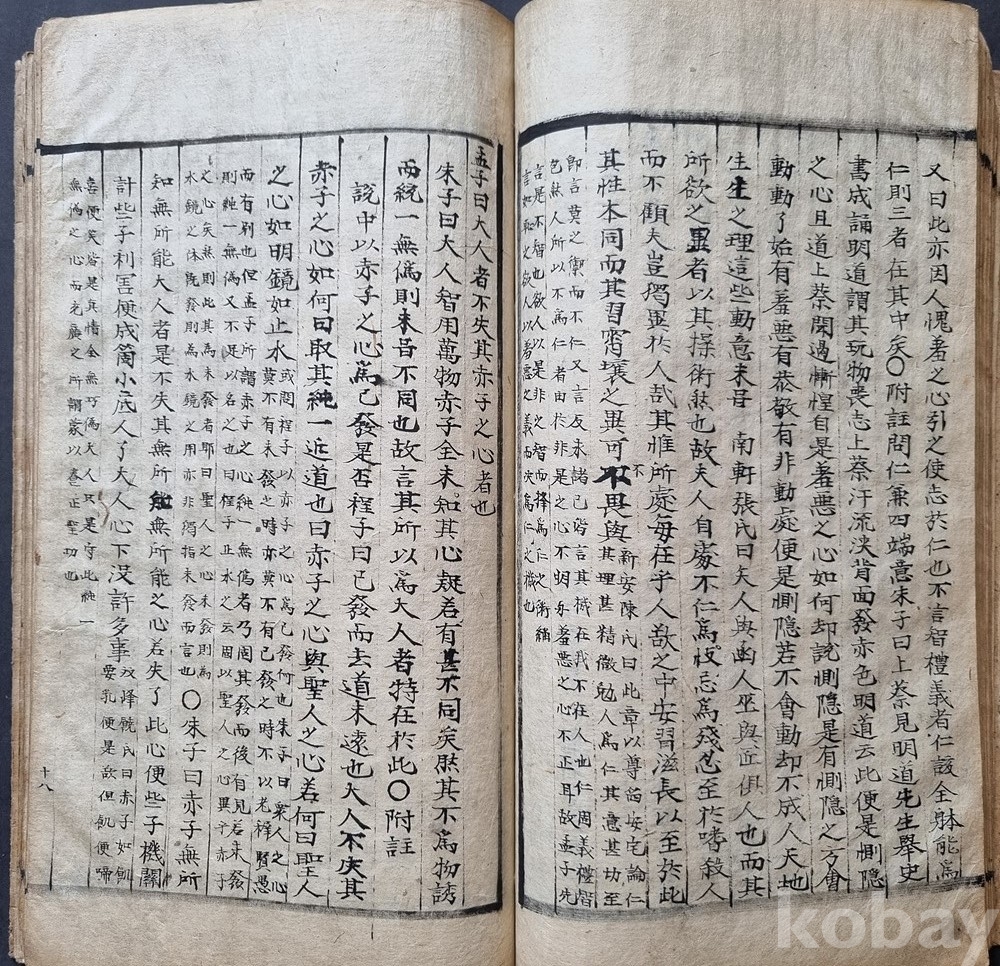 又曰此亦因人愧羞之心引之使志於仁也不言智禮義者仁該全體能爲
仁則三者在其中矣〇附註問仁兼四端意朱子曰上蔡見明道先生舉史
書成誦明道謂其玩物喪志上蔡汗流浹背面發赤色明道云此便是惻隱
之心且道上蔡聞過慚惶自是羞惡之心如何却說惻隱是有惻隱之方會
動動了始有羞惡有恭敬有非動處便是惻隱若不會動却不成人天地
生生之理這些動意未曾 南軒張氏曰夫人與函人巫與匠俱人也而其
所欲之異者以其操術然也故夫人自處不仁爲忮忍爲殘忍至於嗜殺人
而不顧夫豈獨異於人哉其惟所處每在乎人欲之中安習滋長以至於此
其性本同而其習霄壤之異可不畏與 新安陳氏曰此章以尊爵安宅論仁
其理甚精微勉人爲仁其意甚切至
即言莫之禦而不仁又言反求諸己皆言其機在我不在人也仁周義禮智
色然人所以不爲仁者由於非是之心不明而羞惡之心不正耳故孟子先
言是不智也欲人以是非之智而擇爲仁之術繼
言如恥之欲人以羞惡之義而決爲仁之機也
孟子曰大人者不失其赤子之心者也
朱子曰大人智用萬物赤子全未知其心疑若有甚不同矣然其不爲物誘
而純一無僞則未嘗不同也故言其所以爲大人者特在於此〇附註
說中以赤子之心爲已發是否程子曰已發而去道未遠也大人不失其
赤子之心如何曰取其純一近道也曰赤子之心與聖人之心若何曰聖人
之心如明鏡如止水 或問程子以赤子之心爲已發何也朱子曰衆人之心
莫不有未發之時亦莫不有已發之時不以老稚賢愚
而有別也但孟子所謂赤子之心純一無僞者乃因其發而後有見若未發
則純一無僞又不足以名之也曰程子正水之云周以聖人之心異乎赤子
之心矣然則此其爲未發者耶曰聖人之心未發則爲
水鏡之体旣發則爲水鏡之用亦非獨指未發而言也 〇朱子曰赤子無所
知無所能大人者是不失其無所知無所能之心若失了此心便些子機關
計些子利害便成箇小底人了大人心下没許多事 双峰饒氏曰赤子如飢
要乳便是欲但飢便啼
喜便笑皆是眞情全無巧僞大人只是守此純一
無僞之心而充廣之所謂蒙以養正聖功也
十八
kobay